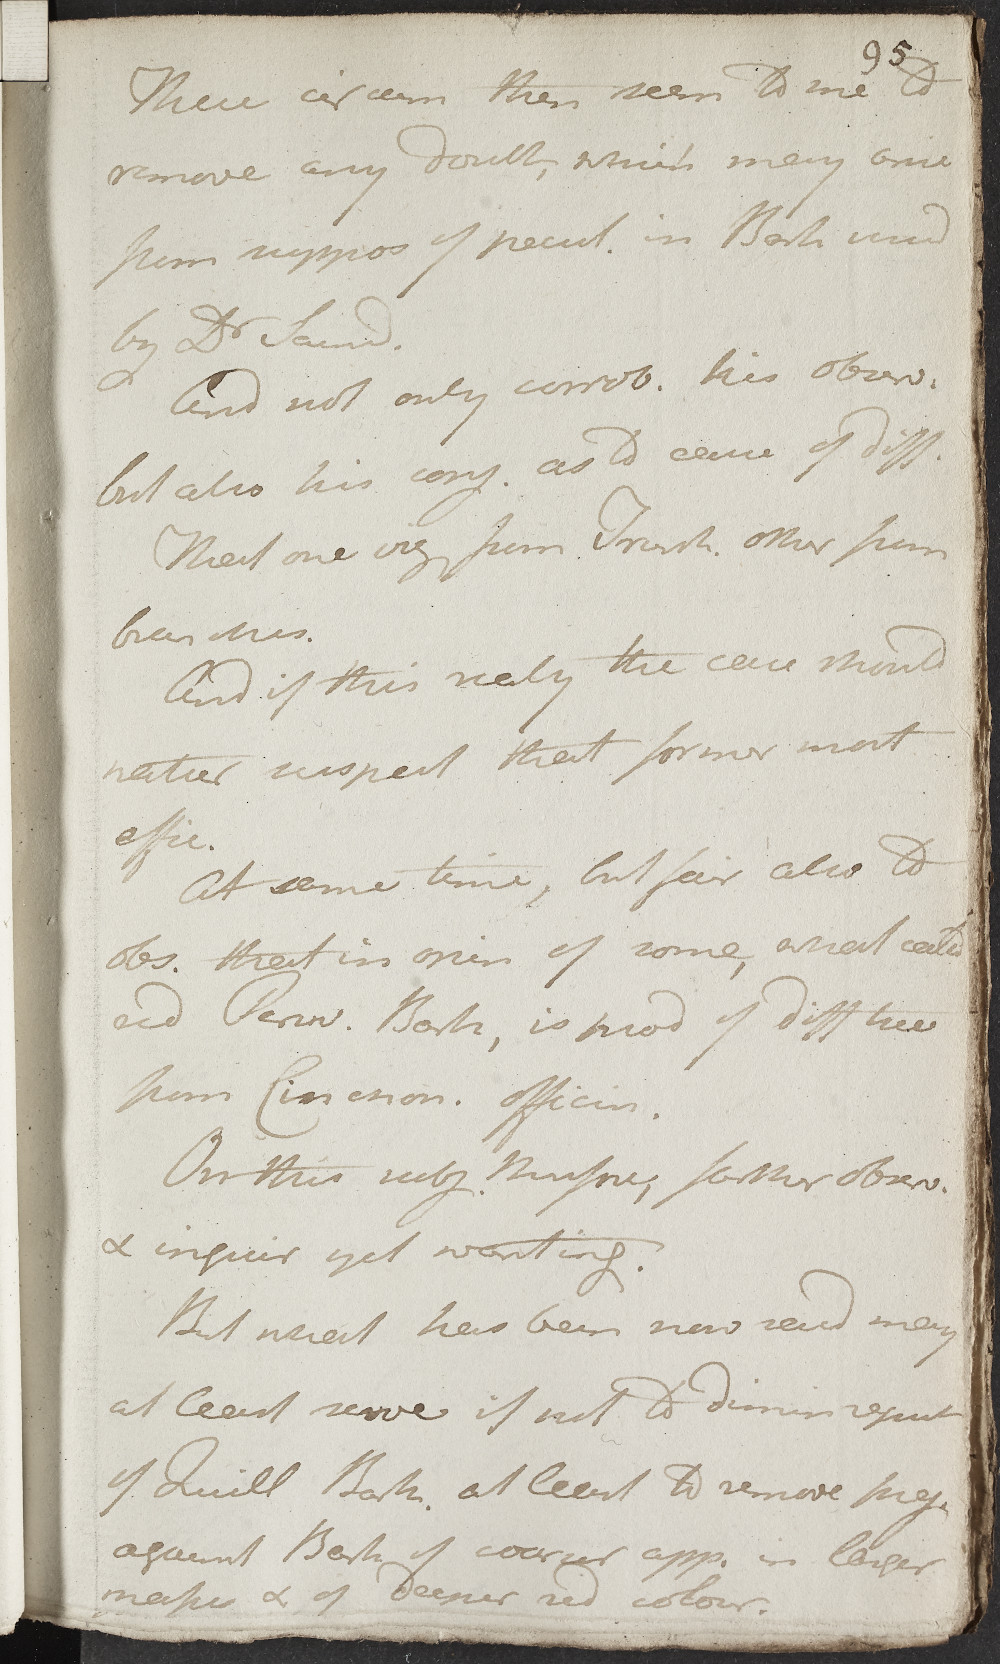 95
These circum then seem to me to
remove any doubt, which may arise
from suppos of pecul. in Bark used
by Dr Saund.
And not only corrob. his observ.
but also his conj. as to cause of diff.
That one orig from Trunk. other from
branches.
And if this realy the case should
rather suspect that former most
effic.
At same time, but fair also to
obs. that in opin of some, what called
red Peruv. Bark, is prod of diff tree
from Cinchon. officin.
On this subj. therfore, farther observ.
& inquir yet wanting.
But what has been now said may
at least serve if not to dimin reput
of Quill Bark. at least to remove prej.
against Bark of coarser app. in larger
masses & of deeper red colour.